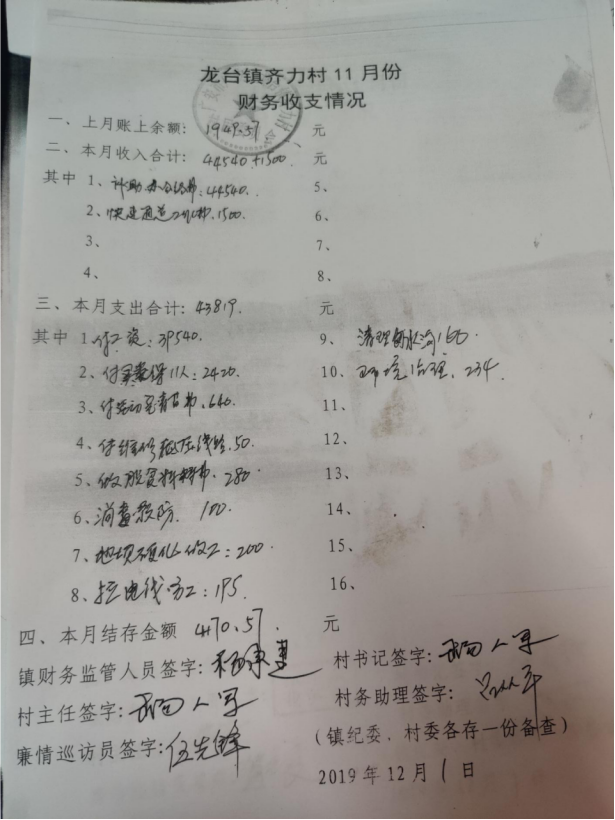 龙台镇齐力村11月份
财务收支情况
一、上月账上余额: 1949.57 元
二、本月收入合计: 44540+1500 元
其中 1、补助办公经费: 44540. 5、
2、快速通道 费. 1500. 6、
3、 7、
4、 8、
三、本月支出合计: 43819. 元
其中 1、付工资: 39540. 9、清理 水沟160.
2、付 保11人: 2420. 10、环境治理. 234.
3、付 费. 640. 11、
4、付维修 压线路. 50. 12、
5、做 资料 费. 280. 13、
6、消毒预防. 100. 14、
7、地坝硬化做工: 200. 15、
8、拉电线 工: 195. 16、
四、本月结存金额 4170.57. 元
镇财务监管人员签字: 村书记签字:
村主任签字: 村务助理签字:
廉情巡访员签字: 伍先锋 (镇纪委、村委各存一份备查)
2019年12月1日